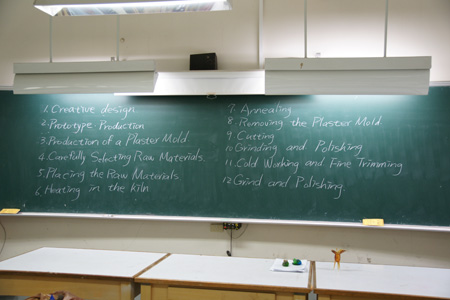 1. Creative design
2. Prototype Production
3. Production of a Plaster Mold
4. Carefully Selecting Raw Materials
5. Placing the Raw Materials
6. Heating in the kiln
7. Annealing
8. Removing the Plaster Mold
9 Cutting
10. Grinding and Polishing
11. Cold Working and Fine Trimming
12. Grind and Polishing